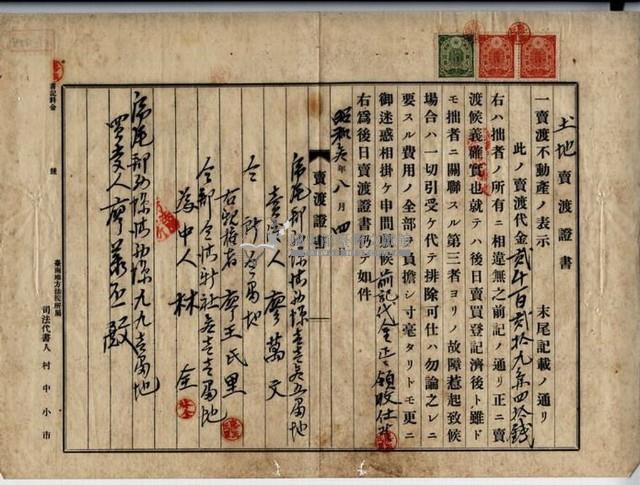 土地賣渡證書
一賣渡不動產ノ表示 末尾記載ノ通リ
此ノ賣渡代金貳千百貳拾九圓四拾錢
右ハ拙者ノ所有ニ相違無之前記ノ通リ正ニ賣
渡候義確實也就テハ後日賣買登記濟後ト雖ド
モ拙者ニ關聯スル第三者ヨリノ故障惹起致候
場合ハ一切引受ケ代テ排除可仕ハ勿論之レニ
要スル費用ノ全部ヲ負擔シ寸毫タリトモ更ニ
御迷惑相掛ケ申間敷候前記代金正ニ領收仕候
右爲後日賣渡證書仍テ如件
昭和 年八月四
賣渡證書
虎尾郡 番地
賣渡人 廖萬文
仝所 番地
右親權者 廖王氏里
仝郡仝 番地
為中人 林全
虎尾郡 九九 番地
買受人 廖 殿
書記料金
臺南地方法院所屬
司法代書人 村中小市